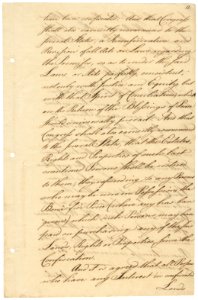 have been confiscated. And that Congress
shall also earnestly recommend to the
several States, a Reconsideration and
Revision of all Acts or Laws regarding
the Premises, so as to render the said
Laws or Acts perfectly consistent, not
only with Justice and Equity, but
with that Spirit of Conciliation which
on the Return of the Blessings of Peace
should universally prevail. And that
Congress shall also earnestly recommend
to the several States, that the Estates,
Rights and Properties of such last
mentioned Persons shall be restored
to them, they refunding to any Persons
who may be now in Possession the
Bona fide Price (where any has been
given) which such Persons may have
paid on purchasing any of the said
Lands, Rights or Properties since the
Confiscation.
And it is agreed that all Persons
who have any Interest in confiscated
Lands